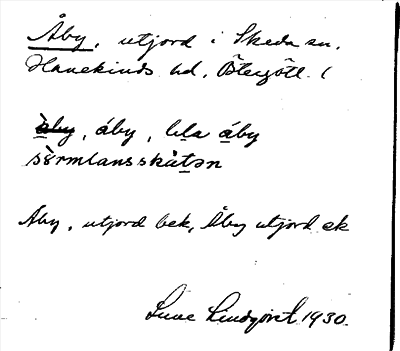 Åby, utjord i Skeda sn.
Hanekinds hd, Östergötl. (
a̠by, áby, lı̠la á̠by
sɛ̀rmlansskàt̠ən
Åby, utjord bek, Åby utjord ek
Sune Lindqvist 1930.